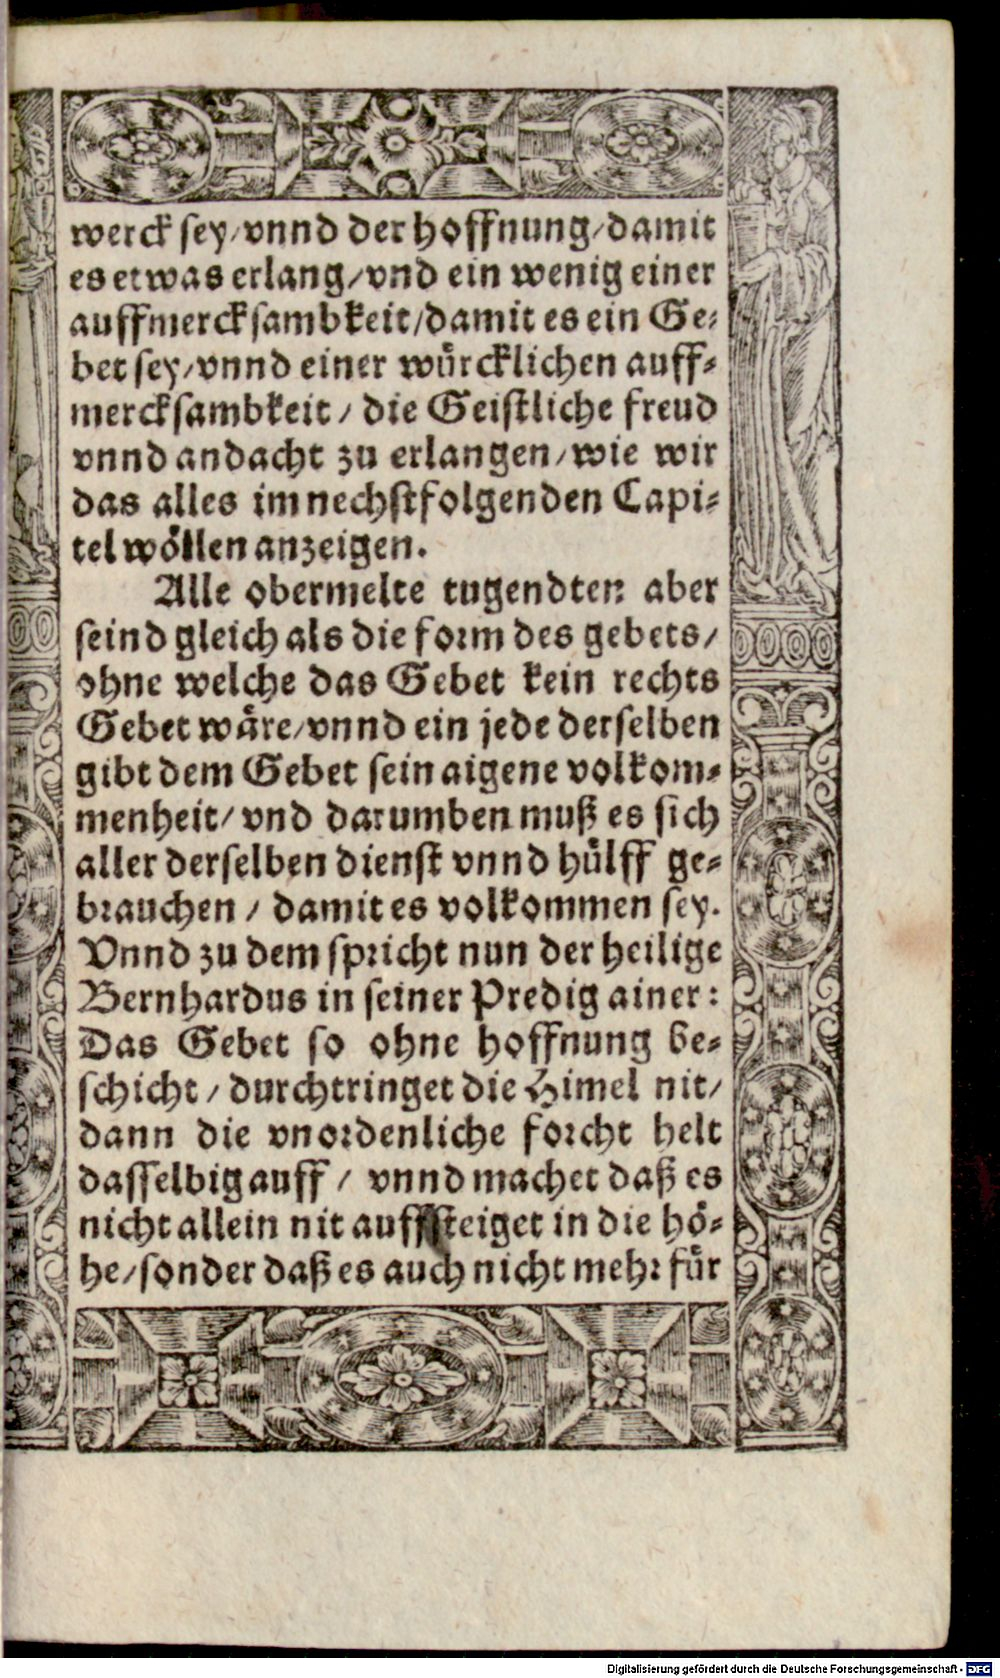 werck sey/vnnd der hoffnung/damit
es etwas erlang/vnd ein wenig einer
auffmercksambkeit/damit es ein Ge-
bet sey/vnnd einer würcklichen auff-
mercksambkeit / die Geistliche freud
vnnd andacht zu erlangen/wie wir
das alles im nechstfolgenden Capi-
tel wöllen anzeigen.
Alle obermelte tugendten aber
seind gleich als die form des gebets/
ohne welche das Gebet kein rechts
Gebet wäre/vnnd ein jede derselben
gibt dem Gebet sein aigene volkom-
menheit/ vnd darumben muß es sich
aller derselben dienst vnnd hülff ge-
brauchen / damit es volkommen sey.
Vnnd zu dem spricht nun der heilige
Bernhardus in seiner Predig ainer:
Das Gebet so ohne hoffnung be-
schicht / durchtringet die Himel nit/
dann die vnordenliche forcht helt
dasselbig auff / vnnd machet daß es
nicht allein nit auffsteiget in die hö-
he/sonder daß es auch nicht mehr für
Digitalisierung gefördert durch die Deutsche Forschungsgemeinschaft - DFG